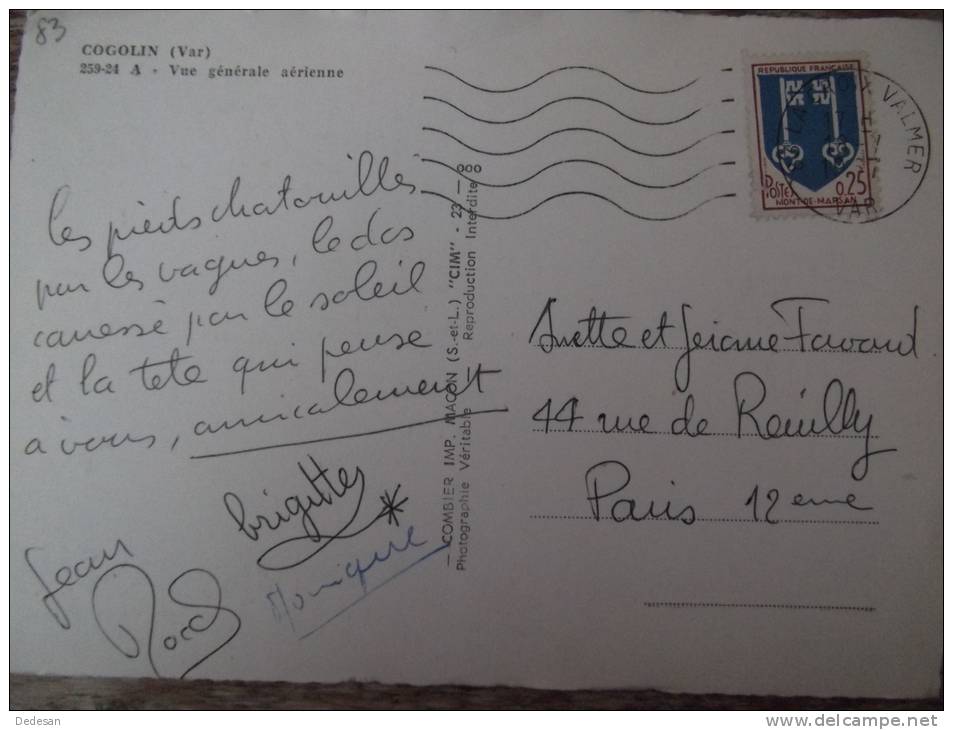 83
COGOLIN (Var)
259-24 A - Vue générale aérienne
REPUBLIQUE FRANÇAISE
POSTES 0,25
MONT-DE-MARSAN
LA CROIX VALMER
VAR
les pieds chatouillés
par les vagues, le dos
caressé par le soleil
et la tete qui pense
à vous, amicalement
brigitte
Jean
Monique
— COMBIER IMP. MACON (S.-et-L.) "CIM" - 23 — ooo
Photographie Véritable Reproduction Interdite
et Favard
44 rue de Reuilly
Paris 12 eme
Dedesan
www.delcampe.net